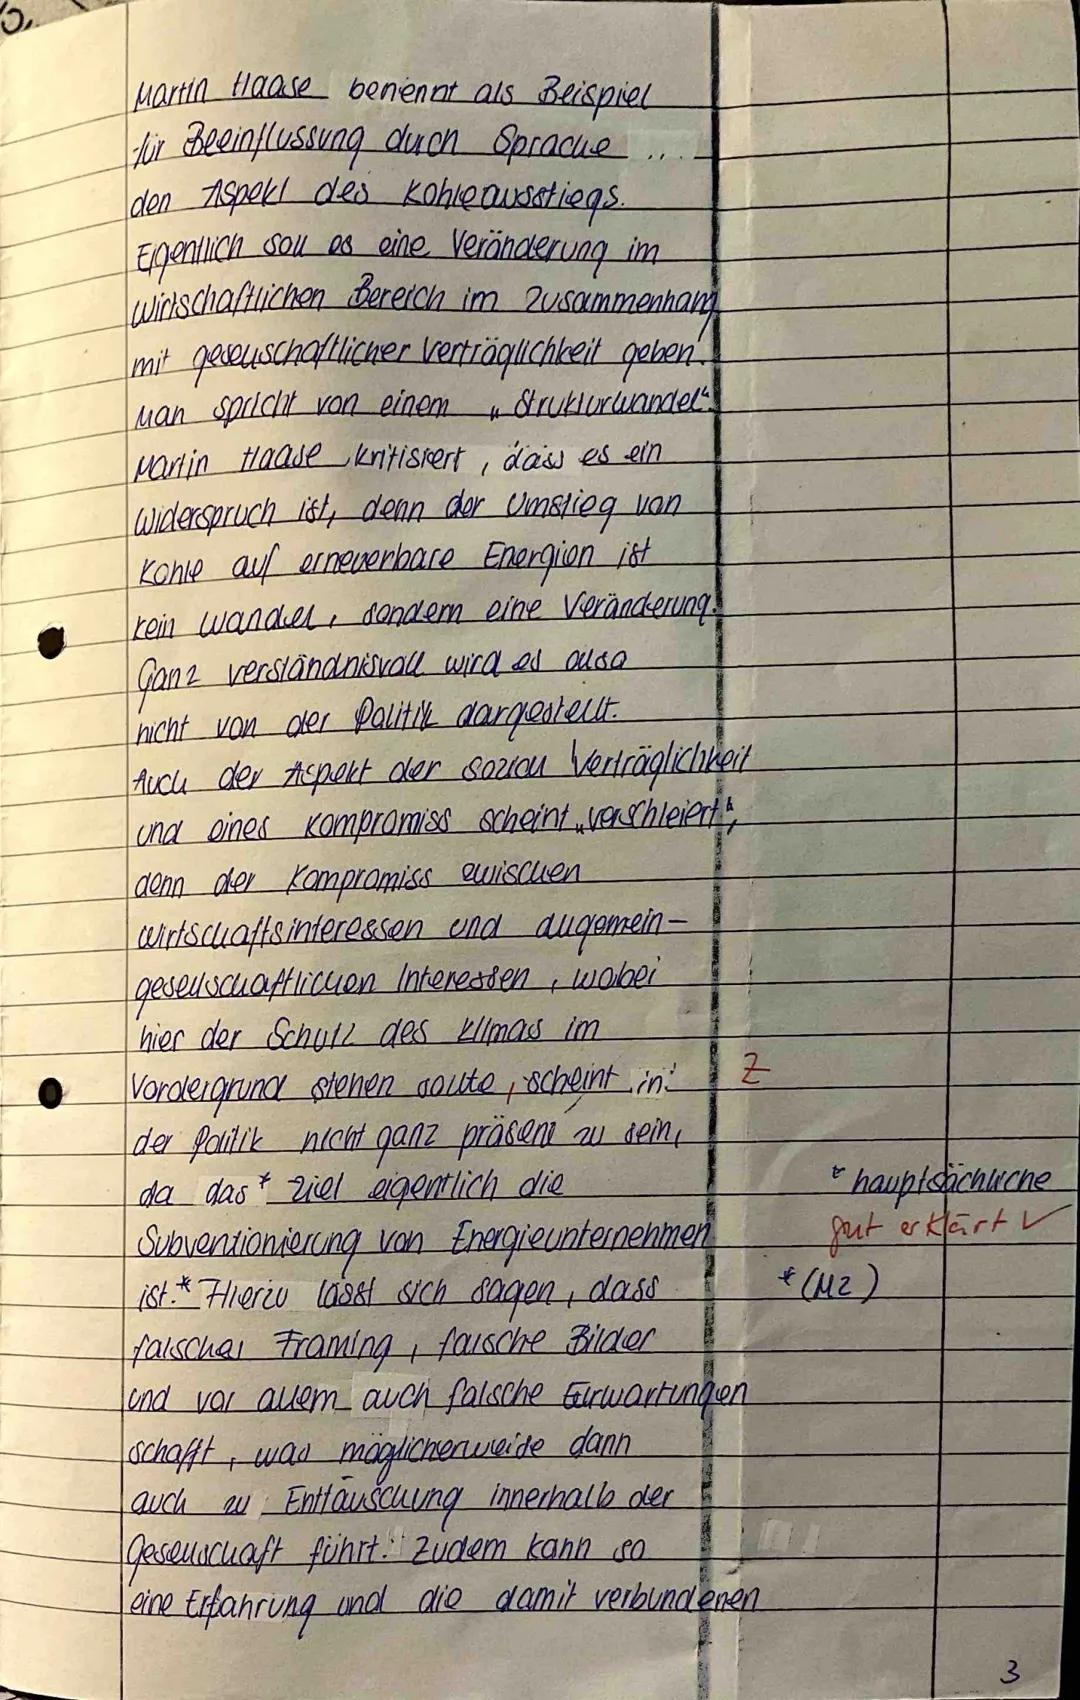 Martin Haase benennt als Beispiel
für Beeinflussung durch Sprache ...
den Aspekt des Kohleausstiegs.
Eigentlich soll es eine Veränderung im
wirtschaftlichen Bereich im Zusammenhang
mit gesellschaftlicher Verträglichkeit geben.
Man spricht von einem „Strukturwandel“.
Martin Haase kritisiert, dass es ein
Widerspruch ist, denn der Umstieg von
Kohle auf erneuerbare Energien ist
kein Wandel, sondern eine Veränderung.
Ganz verständnisvoll wird es also
nicht von der Politik dargestellt.
Auch der Aspekt der sozial Verträglichkeit
und eines Kompromiss scheint „verschleiert“,
denn der Kompromiss zwischen
Wirtschaftsinteressen und allgemein-
gesellschaftlichen Interessen, wobei
hier der Schutz des Klimas im
Vordergrund stehen sollte, scheint in
Z
der Politik nicht ganz präsent zu sein,
da das * Ziel eigentlich die
* hauptsächliche
Subventionierung von Energieunternehmen
gut erklärt ✓
ist.* Hierzu lässt sich sagen, dass
* (M2)
falsches Framing, falsche Bilder
und vor allem auch falsche Erwartungen
schafft, was möglicherweise dann
auch zu Enttäuschung innerhalb der
Gesellschaft führt. Zudem kann so
eine Erfahrung und die damit verbundenen
3